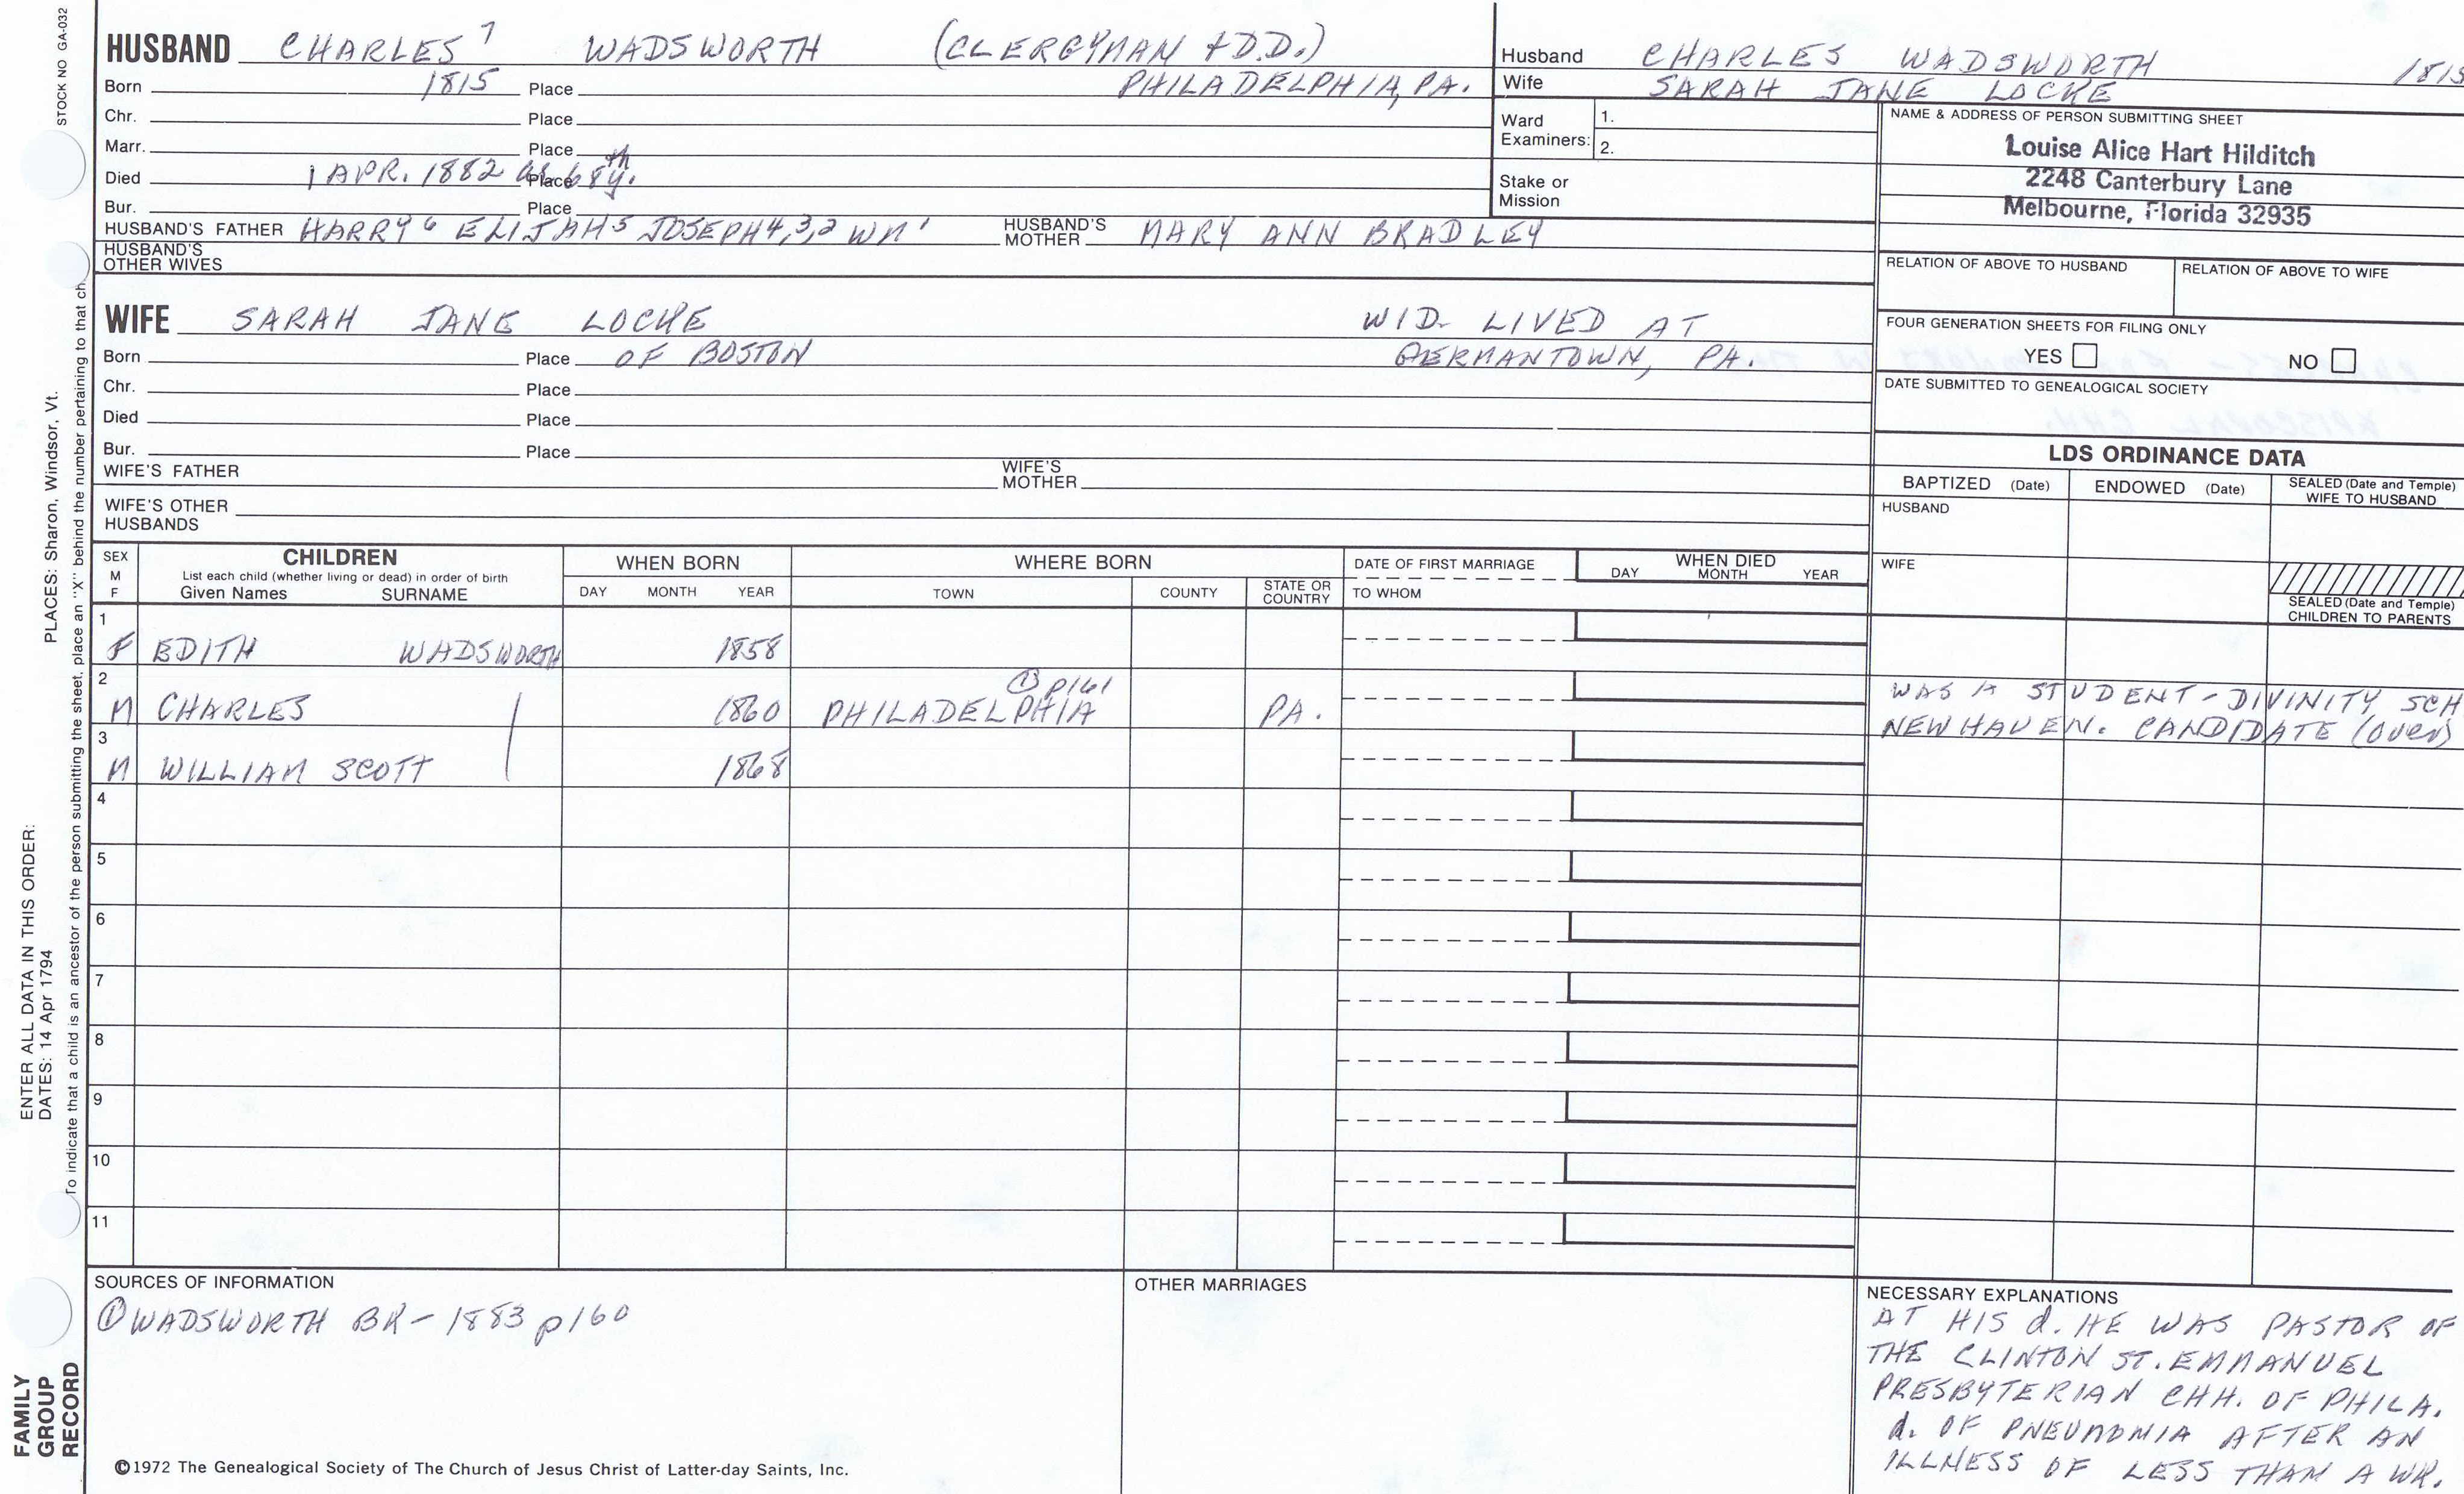 STOCK NO GA-032
HUSBAND CHARLES 7 WADSWORTH (CLERGYMAN + D.D.)
Born 1815 Place PHILADELPHIA, PA.
Chr. Place
Marr. Place
Died 1 APR. 1882 Place 68th y.
Bur. Place
HUSBAND'S FATHER HARRY 6 ELIJAH 5 JOSEPH 4,3,2 WM 1 HUSBAND'S MOTHER MARY ANN BRADLEY
HUSBAND'S OTHER WIVES
WIFE SARAH JANE LOCKE WID. LIVED AT
Born Place OF BOSTON GERMANTOWN, PA.
Chr. Place
Died Place
Bur. Place
WIFE'S FATHER WIFE'S MOTHER
WIFE'S OTHER HUSBANDS
Husband CHARLES WADSWORTH 1815
Wife SARAH JANE LOCKE
Ward Examiners: 1.
2.
Stake or Mission
NAME & ADDRESS OF PERSON SUBMITTING SHEET
Louise Alice Hart Hilditch
2248 Canterbury Lane
Melbourne, Florida 32935
RELATION OF ABOVE TO HUSBAND RELATION OF ABOVE TO WIFE
FOUR GENERATION SHEETS FOR FILING ONLY
YES NO
DATE SUBMITTED TO GENEALOGICAL SOCIETY
LDS ORDINANCE DATA
BAPTIZED (Date) ENDOWED (Date) SEALED (Date and Temple) WIFE TO HUSBAND
HUSBAND
WIFE
SEALED (Date and Temple) CHILDREN TO PARENTS
SEX M F CHILDREN WHEN BORN WHERE BORN DATE OF FIRST MARRIAGE WHEN DIED
List each child (whether living or dead) in order of birth DAY MONTH YEAR
Given Names SURNAME DAY MONTH YEAR TOWN COUNTY STATE OR COUNTRY TO WHOM
1
F EDITH WADSWORTH 1858
2 ① p161 WAS A STUDENT-DIVINITY SCH
M CHARLES 1860 PHILADELPHIA PA. NEW HAVEN. CANDIDATE (over)
3
M WILLIAM SCOTT 1868
4
5
6
7
8
9
10
11
SOURCES OF INFORMATION
① WADSWORTH BK - 1883 p160
OTHER MARRIAGES
NECESSARY EXPLANATIONS
AT HIS d. HE WAS PASTOR OF
THE CLINTON ST. EMMANUEL
PRESBYTERIAN CHH. OF PHILA.
d. OF PNEUMONIA AFTER AN
ILLNESS OF LESS THAN A WK.
©1972 The Genealogical Society of The Church of Jesus Christ of Latter-day Saints, Inc.
FAMILY
GROUP
RECORD
ENTER ALL DATA IN THIS ORDER:
DATES: 14 Apr 1794
PLACES: Sharon, Windsor, Vt.
To indicate that a child is an ancestor of the person submitting the sheet, place an "X" behind the number pertaining to that ch